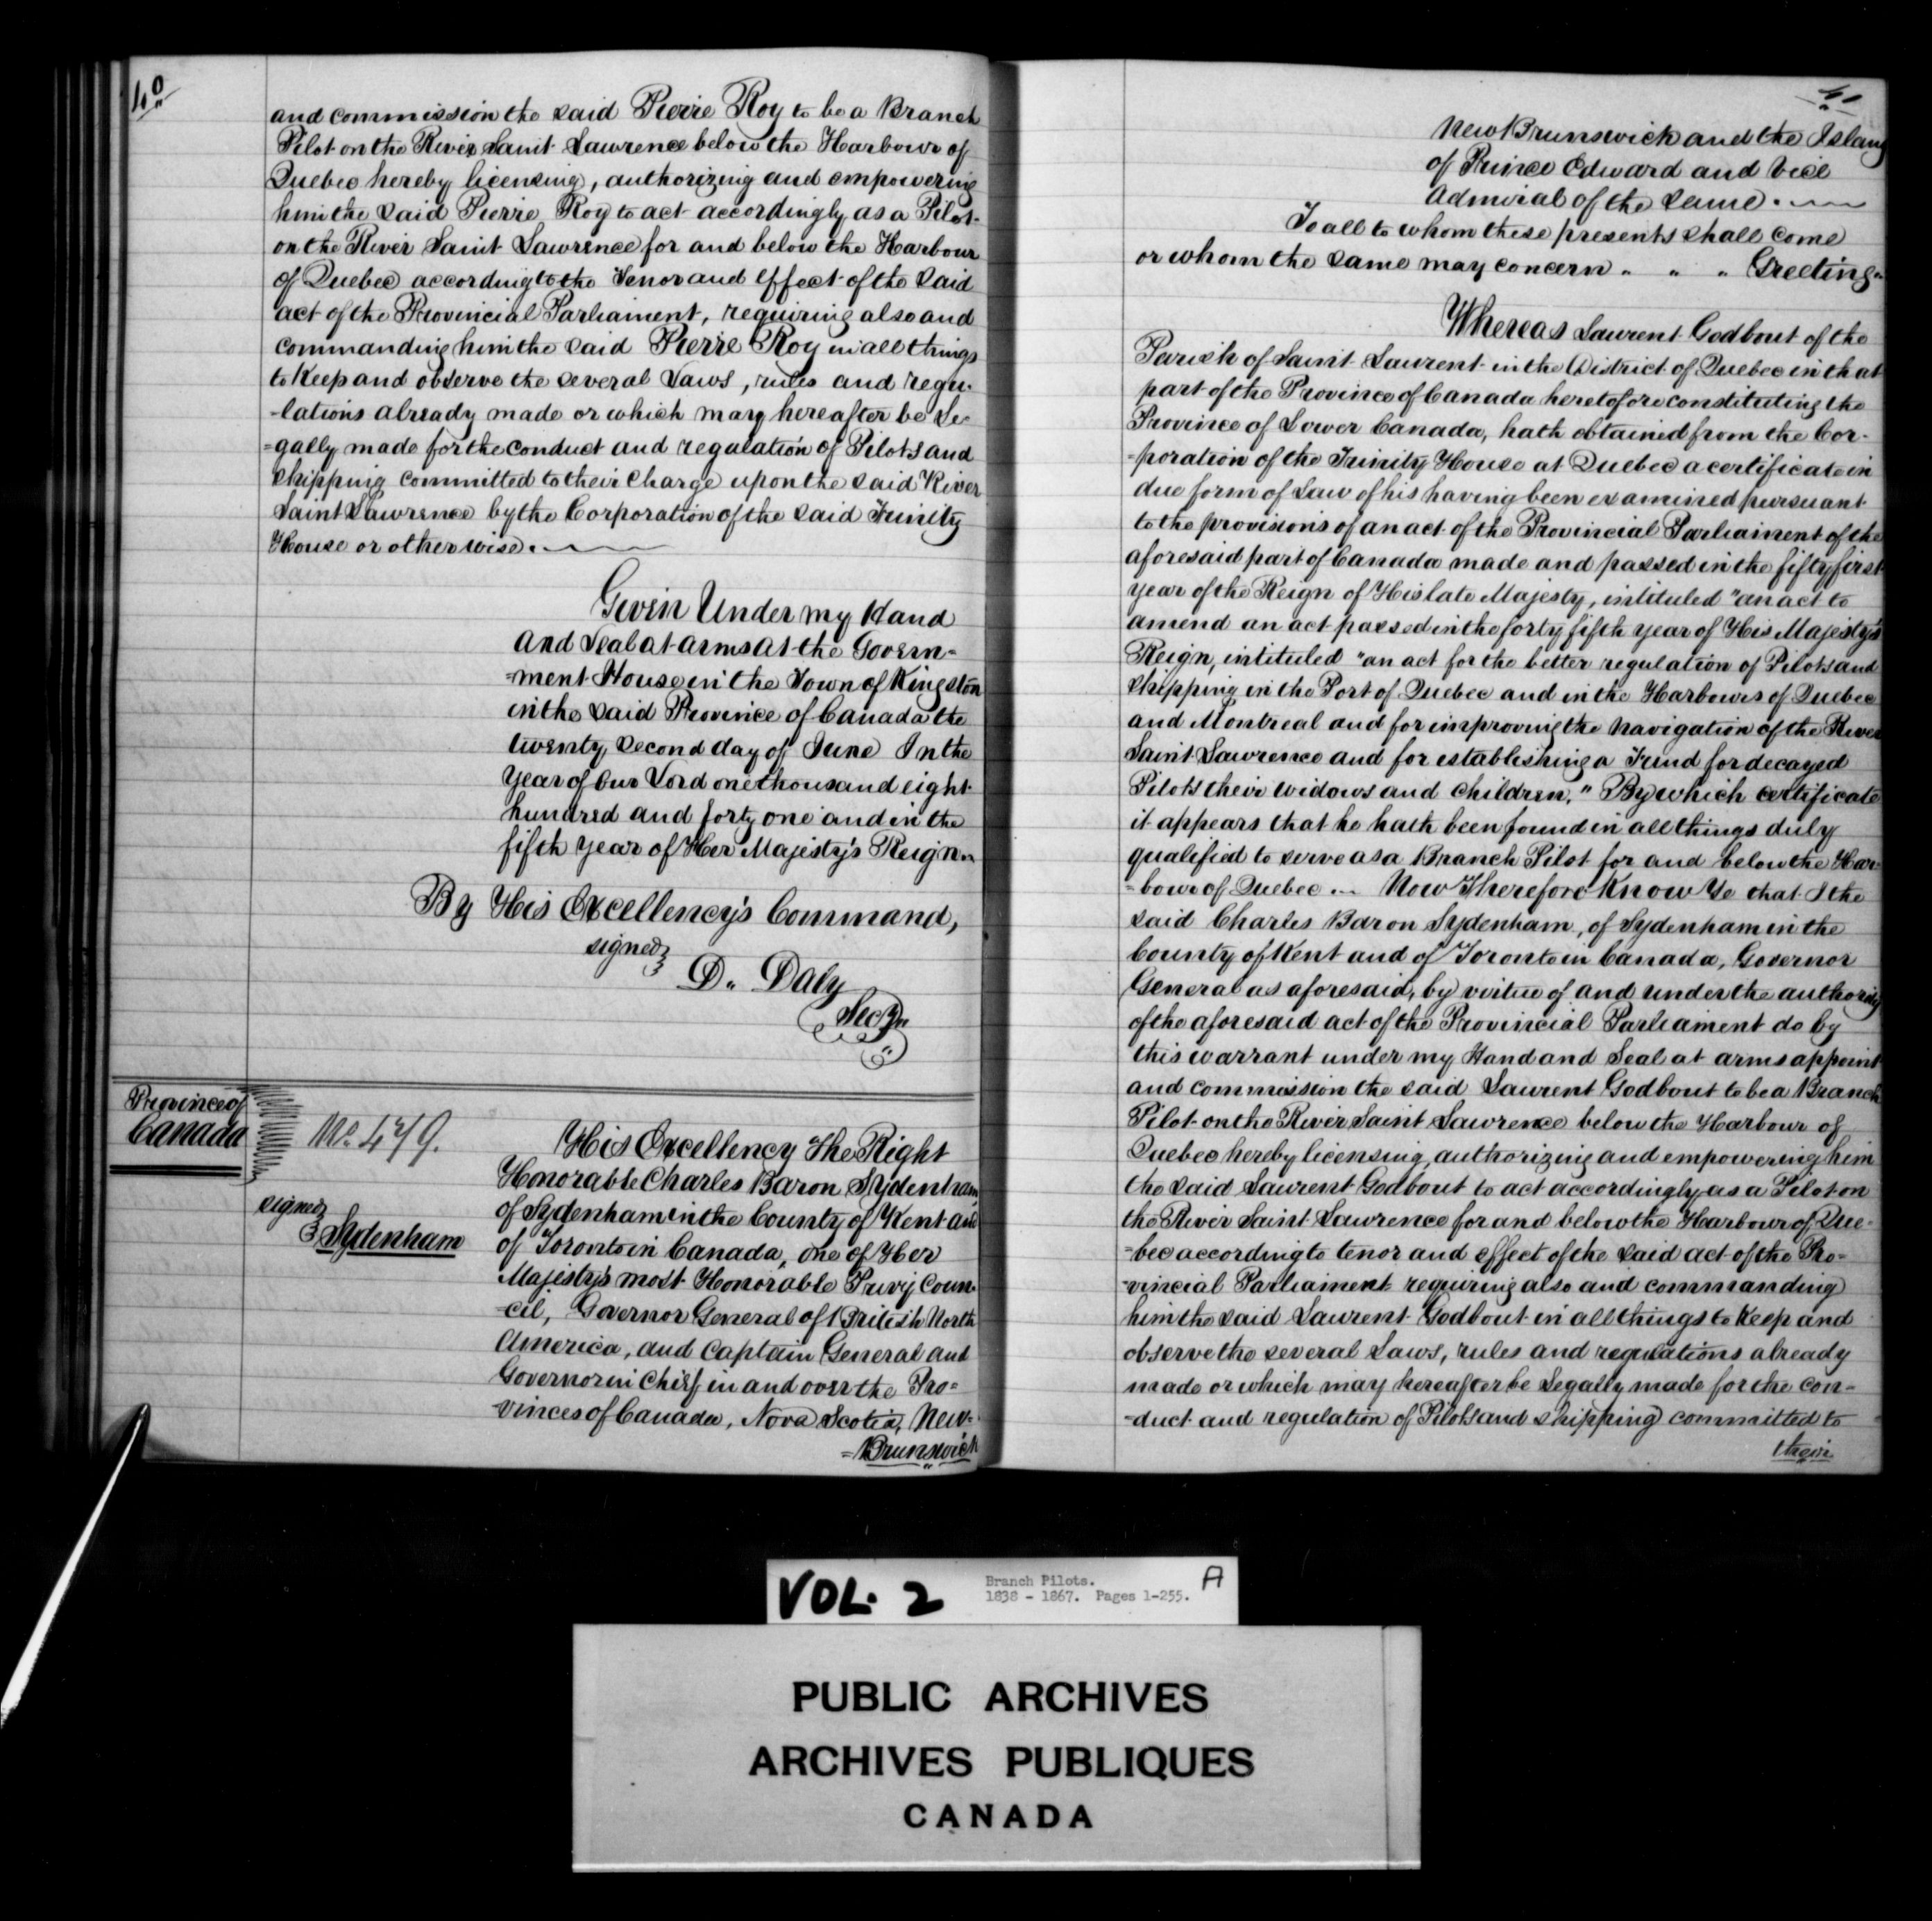 40
and commission the said Pierre Roy to be a Branch
Pilot on the River Saint Lawrence below the Harbour of
Quebec hereby licensing, authorizing and empowering
him the said Pierre Roy to act accordingly as a Pilot
on the River Saint Lawrence for and below the Harbour
of Quebec according to the Tenor and effect of the said
act of the Provincial Parliament, requiring also and
commanding him the said Pierre Roy in all things
to Keep and observe the several Laws, rules and regu-
-lations already made or which may hereafter be Le-
=gally made for the conduct and regulation of Pilots and
Shipping committed to their Charge upon the said River
Saint Lawrence by the Corporation of the said Trinity
House or otherwise.
Given Under my Hand
and Seal at arms at the Govern=
=ment House in the Town of Kingston
in the said Province of Canada the
twenty second day of June In the
Year of Our Lord one thousand eight
hundred and forty one and in the
fifth Year of Her Majesty's Reign
By His Excellency's Command,
signed
D. Daly
Secy
Province of
Canada
No. 479.
signed
Sydenham
His Excellency The Right
Honorable Charles Baron Sydenham
of Sydenham in the County of Kent and
of Toronto in Canada, one of Her
Majesty's most Honorable Privy Coun-
-cil, Governor General of British North
America, and Captain General and
Governor in Chief in and over the Pro=
-vinces of Canada, Nova Scotia, New=
=Brunswick
41
New Brunswick and the Island
of Prince Edward and Vice
Admiral of the same.
To all to whom these presents shall come
or whom the same may concern " " " Greeting.
Whereas Laurent Godbout of the
Parish of Saint Laurent in the District of Quebec in that
part of the Province of Canada heretofore constituting the
Province of Lower Canada, hath obtained from the Cor-
=poration of the Trinity House at Quebec a certificate in
due form of Law of his having been examined pursuant
to the provisions of an act of the Provincial Parliament of the
aforesaid part of Canada made and passed in the fifty first
year of the Reign of His late Majesty, intituled "an act to
amend an act passed in the forty fifth year of His Majesty's
Reign, intituled "an act for the better regulation of Pilots and
Shipping in the Port of Quebec and in the Harbours of Quebec
and Montreal and for improving the navigation of the River
Saint Lawrence and for establishing a Fund for decayed
Pilots their widows and children," By which certificate
it appears that he hath been found in all things duly
qualified to serve as a Branch Pilot for and below the Har-
=bour of Quebec ... Now Therefore Know Ye that I the
said Charles Baron Sydenham, of Sydenham in the
County of Kent and of Toronto in Canada, Governor
General as aforesaid, by virtue of and under the authority
of the aforesaid act of the Provincial Parliament do by
this warrant under my Hand and Seal at arms appoint
and commission the said Laurent Godbout to be a Branch
Pilot on the River Saint Lawrence below the Harbour of
Quebec hereby licensing, authorizing and empowering him
the said Laurent Godbout to act accordingly as a Pilot on
the River Saint Lawrence for and below the Harbour of Que=
=bec according to tenor and effect of the said act of the Pro=
-vincial Parliament requiring also and commanding
him the said Laurent Godbout in all things to Keep and
observe the several Laws, rules and regulations already
made or which may hereafter be Legally made for the con=
=duct and regulation of Pilots and shipping committed to
their
VOL. 2
Branch Pilots.
1838 - 1867. Pages 1-255.
A
PUBLIC ARCHIVES
ARCHIVES PUBLIQUES
CANADA